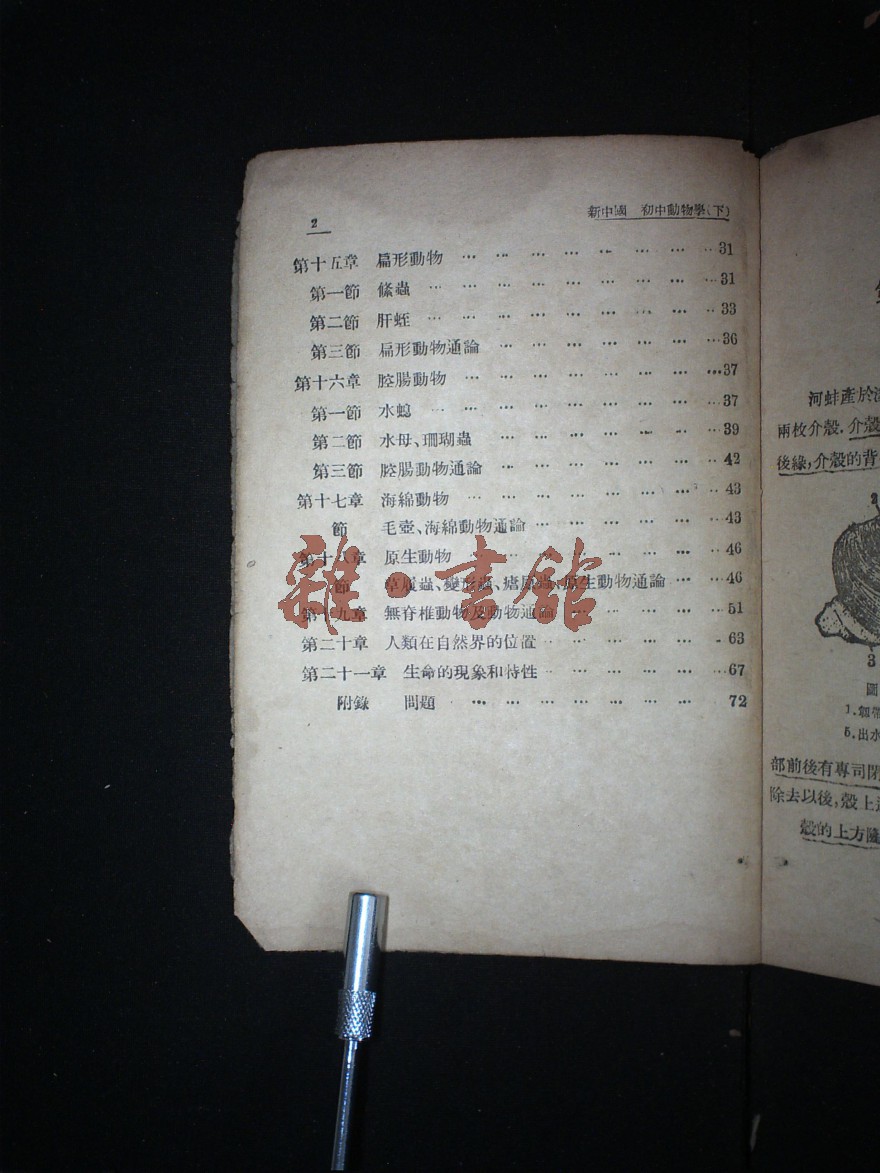 2
新中國 初中動物學(下)
第十五章 扁形動物 … … … … … … … … 31
第一節 絛蟲 … … … … … … … … … 31
第二節 肝蛭 … … … … … … … … … 33
第三節 扁形動物通論 … … … … … … … 36
第十六章 腔腸動物 … … … … … … … … 37
第一節 水螅 … … … … … … … … … 37
第二節 水母、珊瑚蟲 … … … … … … … 39
第三節 腔腸動物通論 … … … … … … … 42
第十七章 海綿動物 … … … … … … … … 43
節 毛壺、海綿動物通論 … … … … … … 43
第十八章 原生動物 … … … … … … … … 46
節 草履蟲、變形蟲、瘧原蟲、原生動物通論 … … 46
第十九章 無脊椎動物及動物通論 … … … … … 51
第二十章 人類在自然界的位置 … … … … … … 63
第二十一章 生命的現象和特性 … … … … … … 67
附錄 問題 … … … … … … … … 72
雜·書館
河蚌產於
兩枚介殼.介殼
後緣,介殼的背
3
圖
1.韌帶
5.出水
部前後有專司閉
除去以後,殼上
殼的上方隨